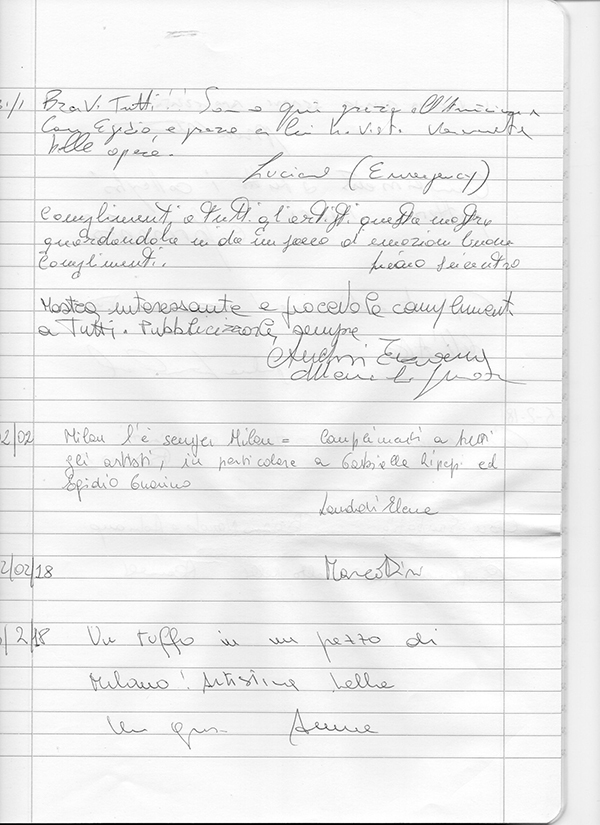 31/1 Bravi Tutti! Sono qui grazie all'Amicizia
con Egidio, e grazie a lui ho visto veramente
belle opere.
Luciano (Emergency)
Complimenti a tutti gli artisti questa mostra
guardandola mi da un sacco di emozioni buone
Complimenti.
Mostra interessante e piacevole complimenti
a Tutti. Pubblicizzarle, sempre
02/02 Milan l'è semper Milan = Complimenti a tutti
gli artisti, in particolare a Gabriella ed
Egidio Guarino
Landi Elena
2/02/18 Marco
/2/18 Un tuffo in un pezzo di
Milano! bella
Un